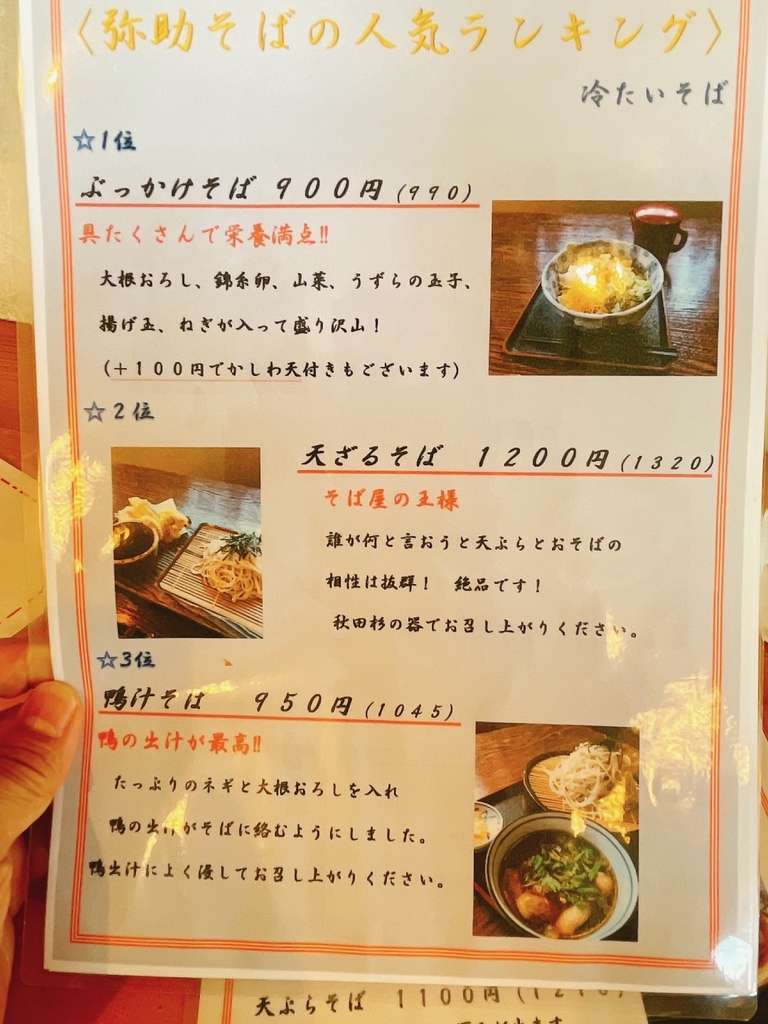 〈弥助そばの人気ランキング〉
冷たいそば
☆1位
ぶっかけそば 900円(990)
具たくさんで栄養満点!!
大根おろし、錦糸卵、山菜、うずらの玉子、
揚げ玉、ねぎが入って盛り沢山！
(＋100円でかしわ天付きもございます)
☆2位
天ざるそば 1200円(1320)
そば屋の王様
誰が何と言おうと天ぷらとおそばの
相性は抜群！ 絶品です！
秋田杉の器でお召し上がりください。
☆3位
鴨汁そば 950円(1045)
鴨の出汁が最高!!
たっぷりのネギと大根おろしを入れ
鴨の出汁がそばに絡むようにしました。
鴨出汁によく浸してお召し上がりください。
天ぷらそば 1100円(1210)